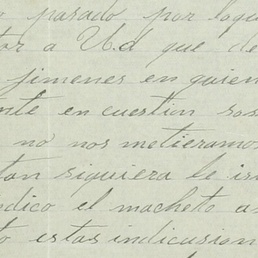 pasado por lo que
tor a U.d que de
jimenes en quien
nte en cuestion sos
no nos metieramos
tan siquiera le is
dico el macheto a
estas indicusion